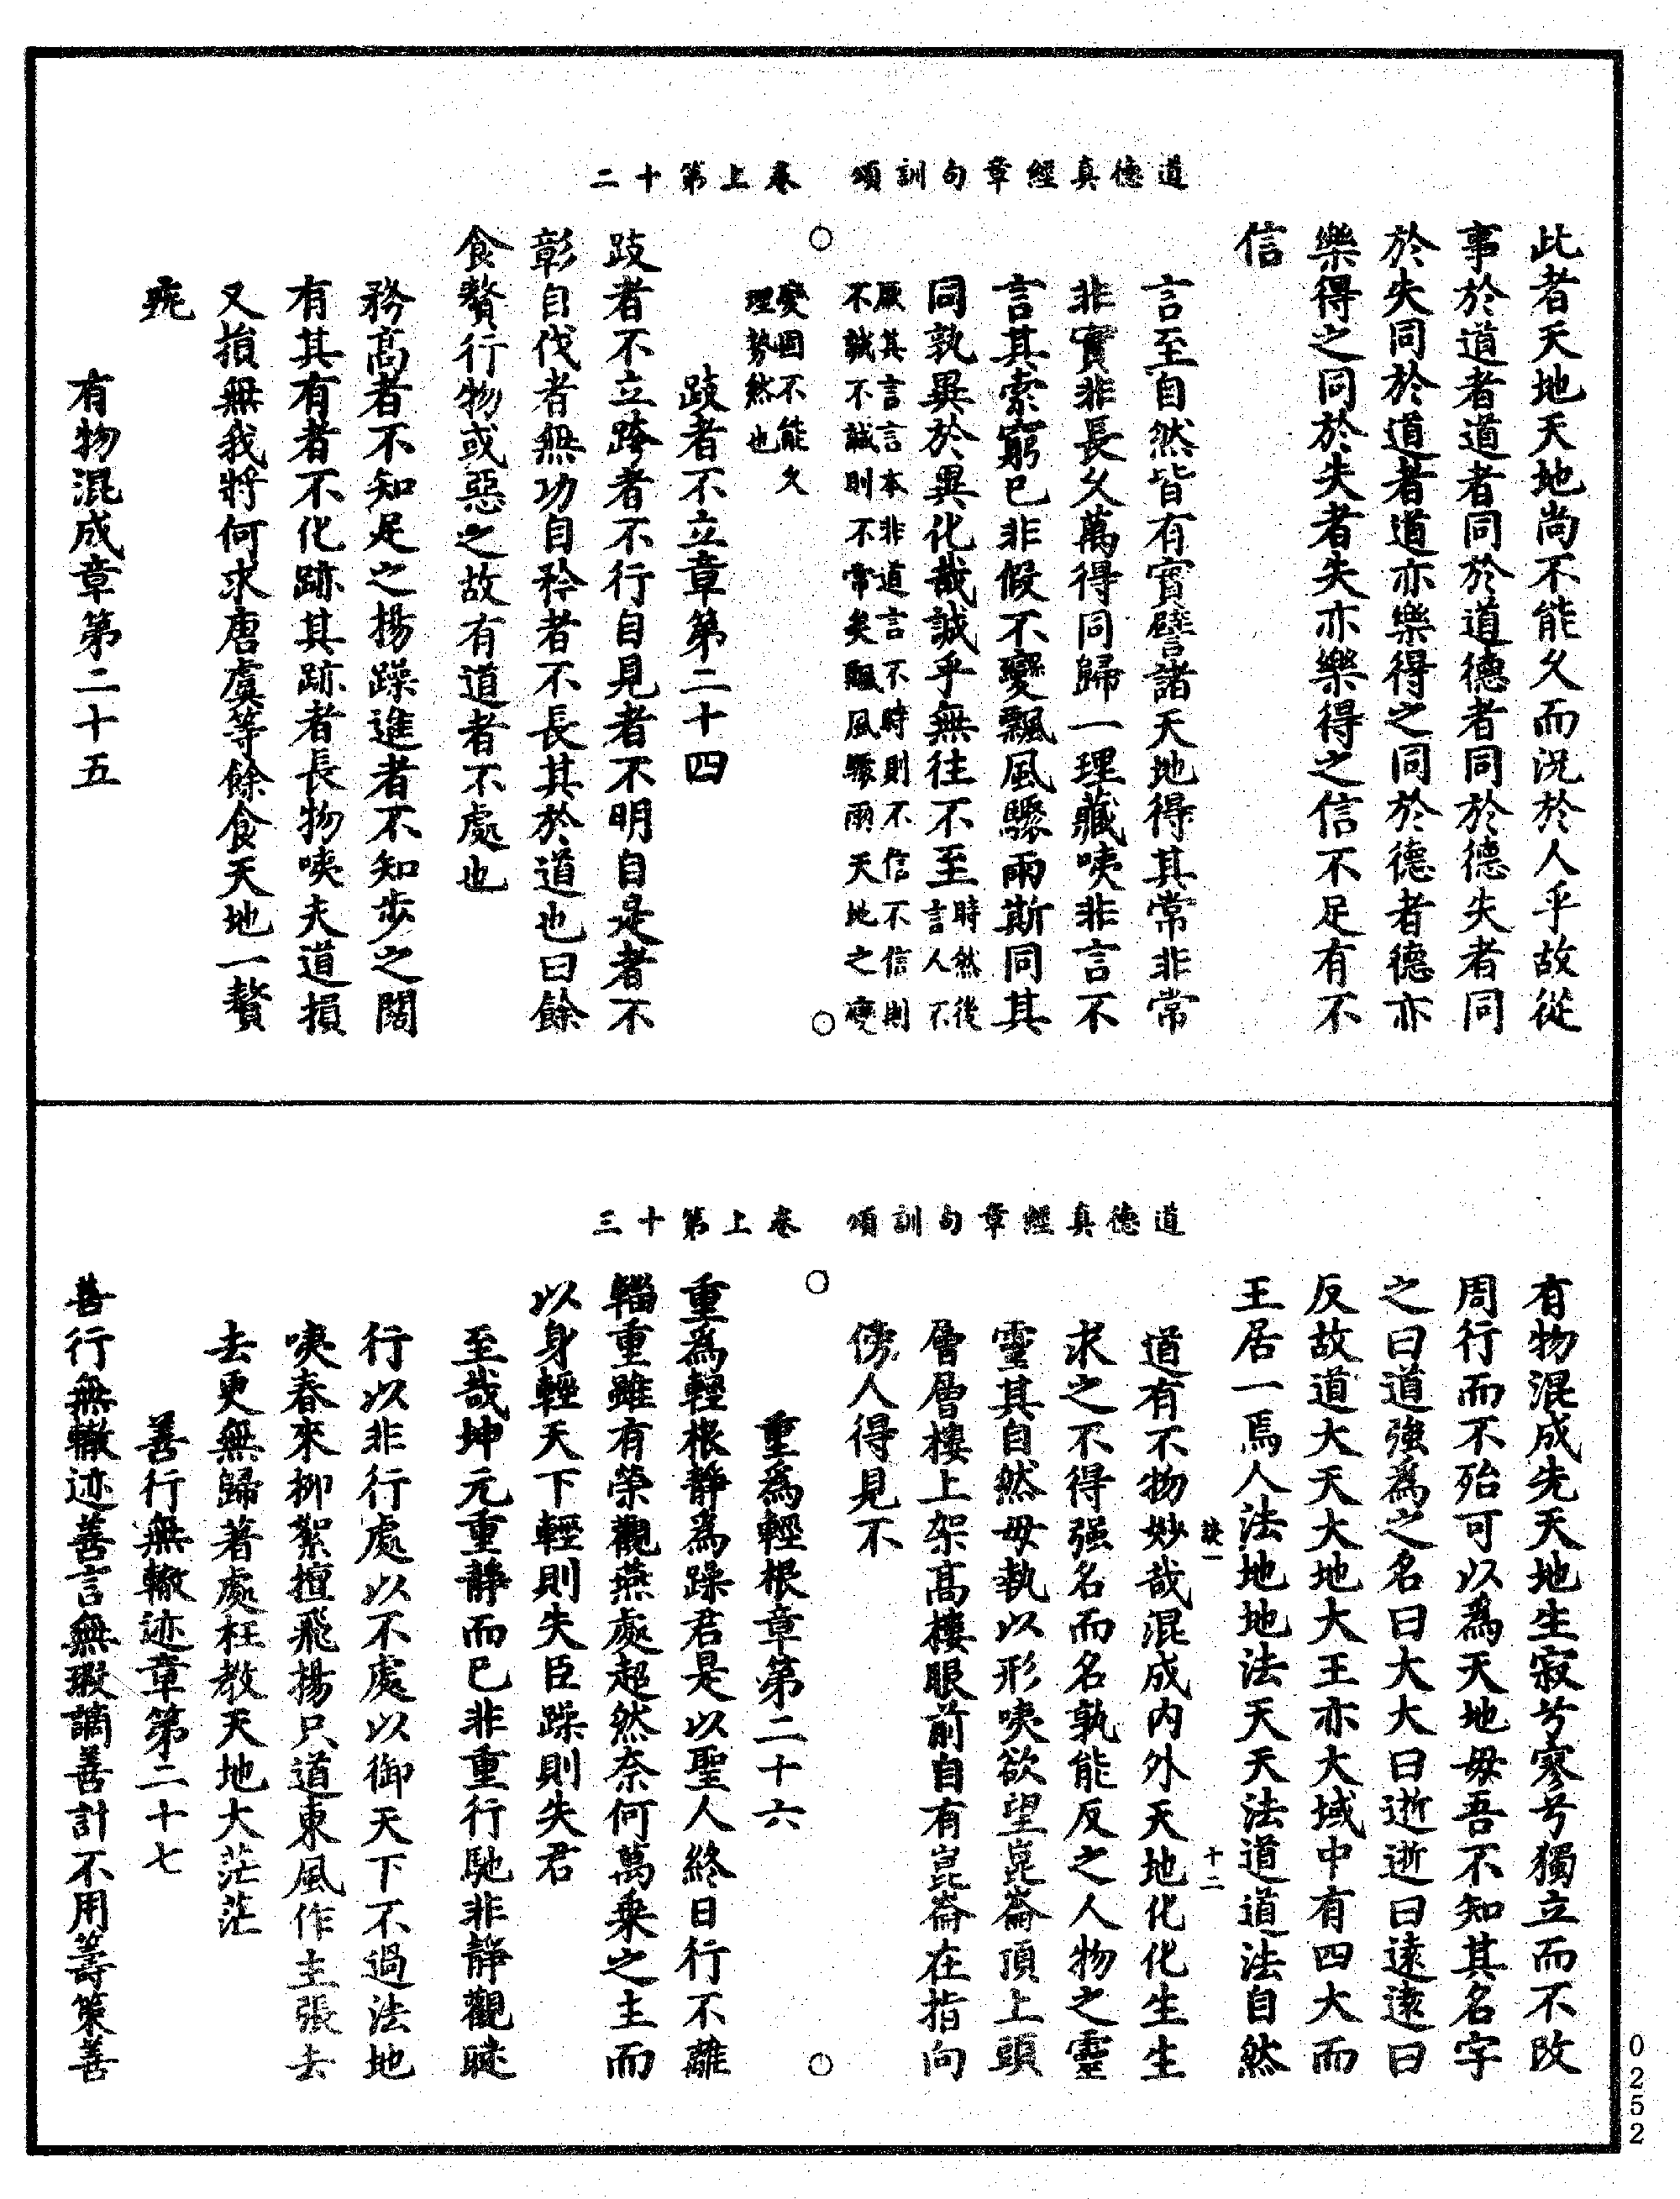 道德真經章句訓頌　卷上第十二
此者天地天地尚不能久而況於人乎故從
事於道者道者同於道德者同於德失者同
於失同於道者道亦樂得之同於德者德亦
樂得之同於失者失亦樂得之信不足有不
信
言至自然皆有實譬諸天地得其常非常
非實非長久萬得同歸一理藏咦非言不
言其索窮已非假不變飄風驟雨斯同其
同孰異於異化哉誠乎無往不至時然後
言人不
厭其言言本非道言不時則不信不信則
不誠不誠則不常矣飄風驟雨天地之變
變因不能久
理勢然也
跂者不立章第二十四
跂者不立跨者不行自見者不明自是者不
彰自伐者無功自矜者不長其於道也曰餘
食贅行物或惡之故有道者不處也
務高者不知足之揚躁進者不知步之闊
有其有者不化跡其跡者長物咦夫道損
又損無我將何求唐虞等餘食天地一贅
疣
有物混成章第二十五
道德真經章句訓頌　卷上第十三
有物混成先天地生寂兮寥兮獨立而不改
周行而不殆可以為天地母吾不知其名字
之曰道強為之名曰大大曰逝逝曰遠遠曰
反故道大天大地大王亦大域中有四大而
王居一焉人法地地法天天法道道法自然
談一　十二
道有不物妙哉混成內外天地化化生生
求之不得强名而名孰能反之人物之靈
靈其自然毋執以形咦欲望崑崙頂上頭
層層樓上架高樓眼前自有崑崙在指向
傍人得見不
重為輕根章第二十六
重為輕根靜為躁君是以聖人終日行不離
輜重雖有榮觀燕處超然奈何萬乗之主而
以身輕天下輕則失臣躁則失君
至哉坤元重靜而已非重行馳非靜觀睫
行以非行處以不處以御天下不過法地
咦春來柳絮擅飛揚只道東風作主張去
去更無歸著處枉教天地大茫茫
善行無轍迹章第二十七
善行無轍迹善言無瑕謫善計不用籌策善
0252